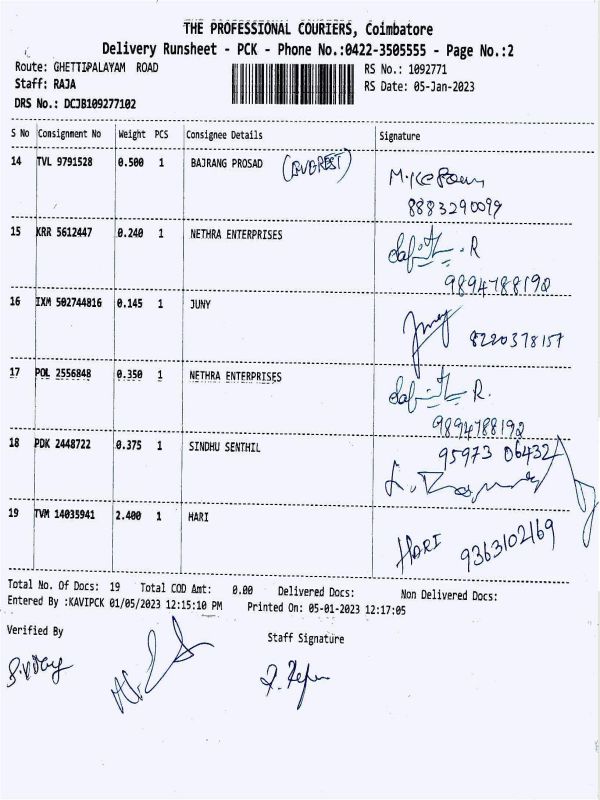 THE PROFESSIONAL COURIERS, Coimbatore
Delivery Runsheet - PCK - Phone No.:0422-3505555 - Page No.:2
Route: GHETTIPALAYAM ROAD RS No.: 1092771
Staff: RAJA RS Date: 05-Jan-2023
DRS No.: DCJB109277102
S No Consignment No Weight PCS Consignee Details Signature
14 TVL 9791528 0.500 1 BAJRANG PROSAD
8883290099
15 KRR 5612447 0.240 1 NETHRA ENTERPRISES
9894788192
16 IXM 502744816 0.145 1 JUNY
8220378157
17 POL 2556848 0.350 1 NETHRA ENTERPRISES
9894788192
18 PDK 2448722 0.375 1 SINDHU SENTHIL
95973 06432
19 TVM 14035941 2.400 1 HARI
HARI 9363102169
Total No. Of Docs: 19 Total COD Amt: 0.00 Delivered Docs: Non Delivered Docs:
Entered By :KAVIPCK 01/05/2023 12:15:10 PM Printed On: 05-01-2023 12:17:05
Verified By Staff Signature